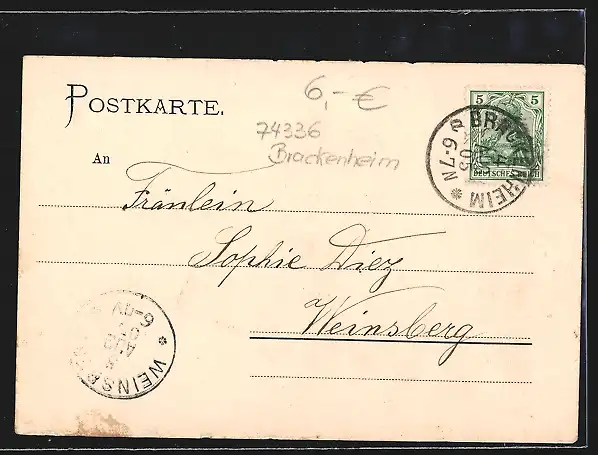 POSTKARTE.
6,- €
74336
Brackenheim
5 5
DEUTSCHES REICH
BRACKENHEIM
6-7 N
An
Fräulein
Sophie Diez
Weinsberg
WEINSBERG
5
AUG
03